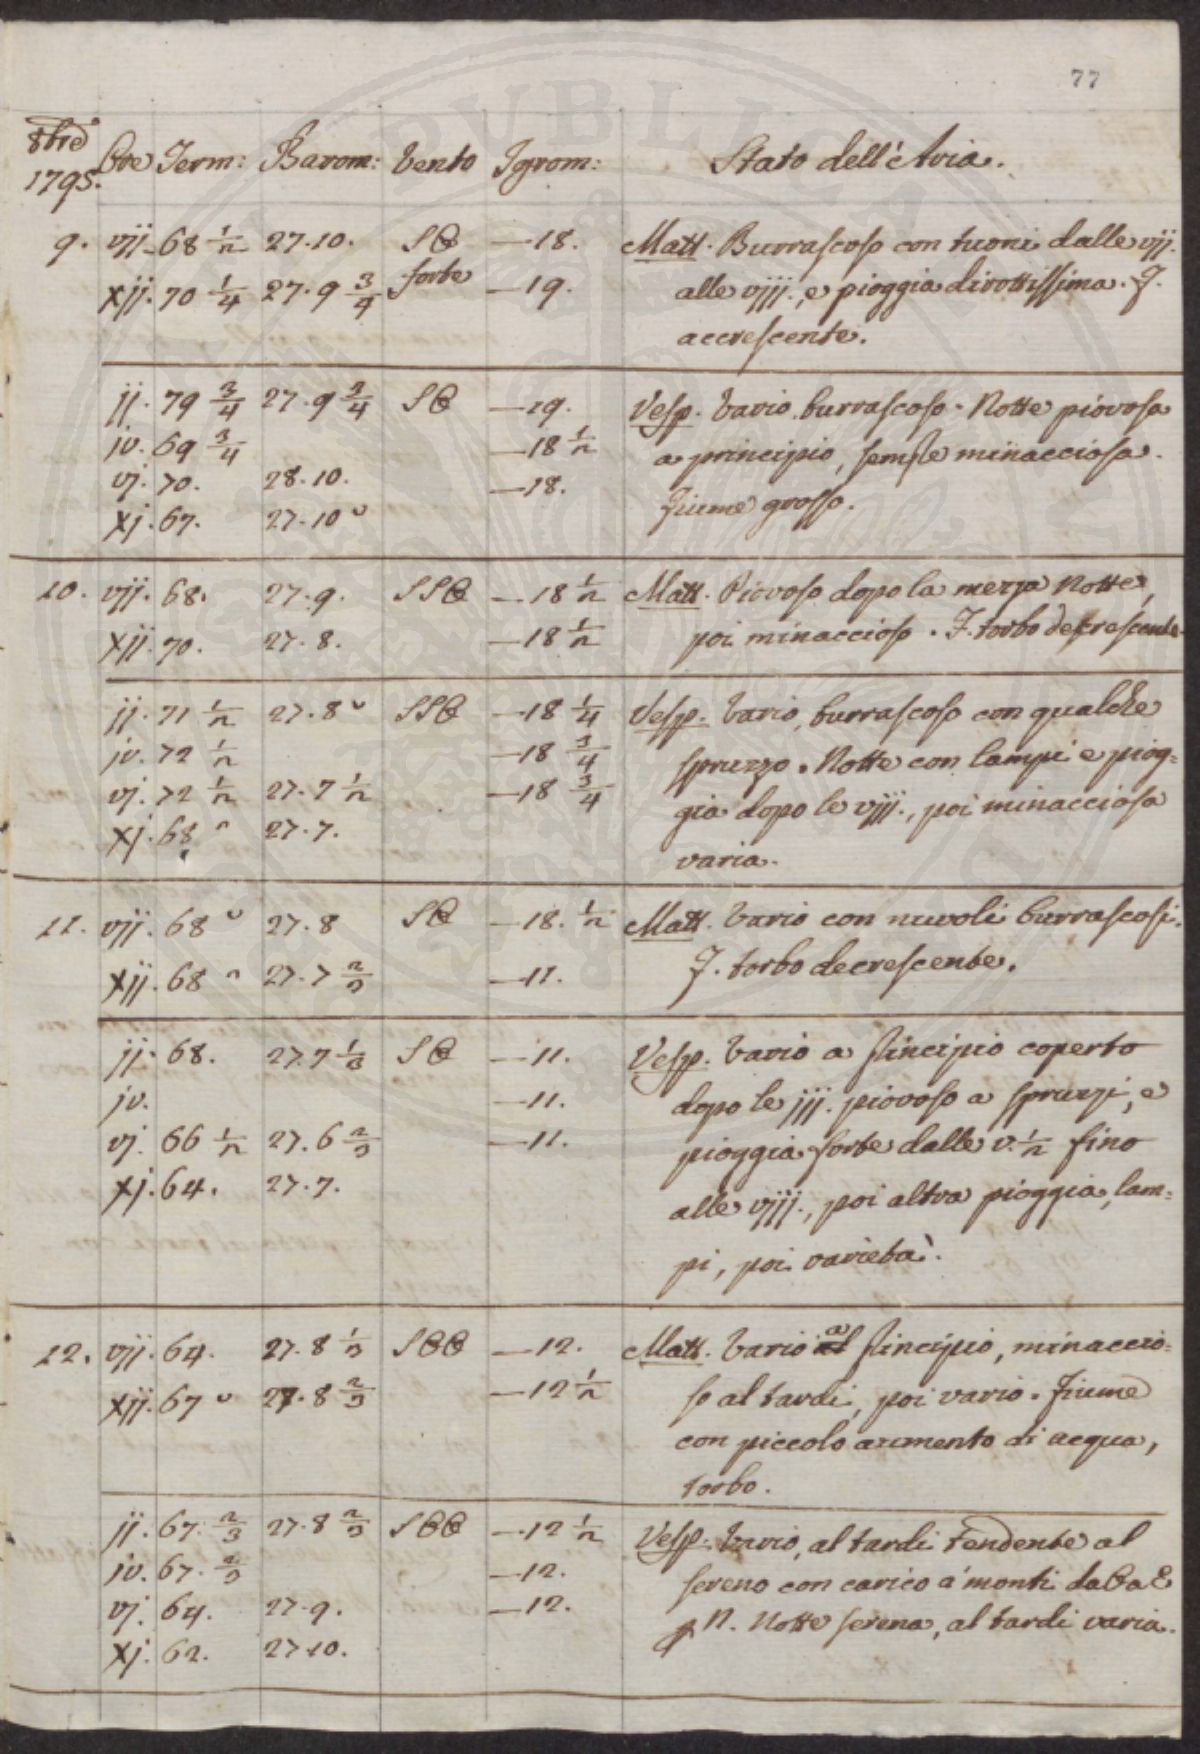 77
8bre 1795. Ore Term: Barom: Vento Igrom: Stato dell'Aria.
9. vij. 68 1/2 27.10. SO —18. Matt. Burrascoso con tuoni dalle vij.
xij. 70 1/4 27.9 3/4 forte —19. alle viij., e pioggia dirottissima. F.
accrescente.
ij. 79 3/4 27.9 3/4 SO —19. Vesp. Vario burrascoso. Notte piovosa
iv. 69 3/4 —18 1/2 a principio, sempre minacciosa.
vj. 70. 28.10. —18. Fiume grosso.
xj. 67. 27.10 ᵕ
10. vij. 68. 27.9. SSO —18 1/2 Matt. Piovoso dopo la mezza Notte,
xij. 70. 27.8. —18 1/2 poi minaccioso. F. torbo decrescente.
ij. 71 1/2 27.8 ᵕ SSO —18 1/4 Vesp. Vario, burrascoso con qualche
iv. 72 1/2 —18 3/4 spruzzo. Notte con lampi e piog=
vj. 72 1/2 27.7 1/2 —18 3/4 gia dopo le viij., poi minacciosa
xj. 68 ^ 27.7. varia.
11. vij. 68 ᵕ 27.8 SO —18. 1/2 Matt. Vario con nuvoli burrascosi.
xij. 68 ^ 27.7 2/3 —11. F. torbo decrescente.
ij. 68. 27.7 1/3 SO —11. Vesp. Vario a principio coperto
iv. —11. dopo le iij. piovoso a spruzzi, e
vj. 66 1/2 27.6 2/3 —11. pioggia forte dalle v. 1/2 fino
xj. 64. 27.7. alle viij., poi altra pioggia, lam=
pi, poi varietà.
12. vij. 64. 27.8 1/3 SOO —12. Matt. Vario a principio, minaccio=
xij. 67 ᵕ 27.8 2/3 —12 1/2 so al tardi, poi vario. Fiume
con piccolo aumento di acqua,
torbo.
ij. 67. 2/3 27.8 2/3 SOO —12 1/2 Vesp. Vario, al tardi tendente al
iv. 67. 2/3 —12. sereno con carico a' monti da O a E
vj. 64. 27.9. —12. N. Notte serena, al tardi varia.
xj. 62. 27.10.